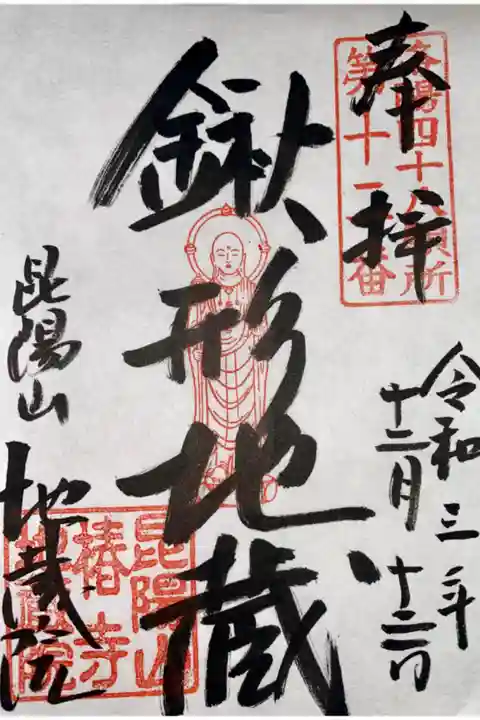 奉拝
洛陽四十八願所
第十 番
令和三年
十二月十二日
鍬形地蔵
昆陽山
地蔵院
昆陽山
椿寺
地蔵院